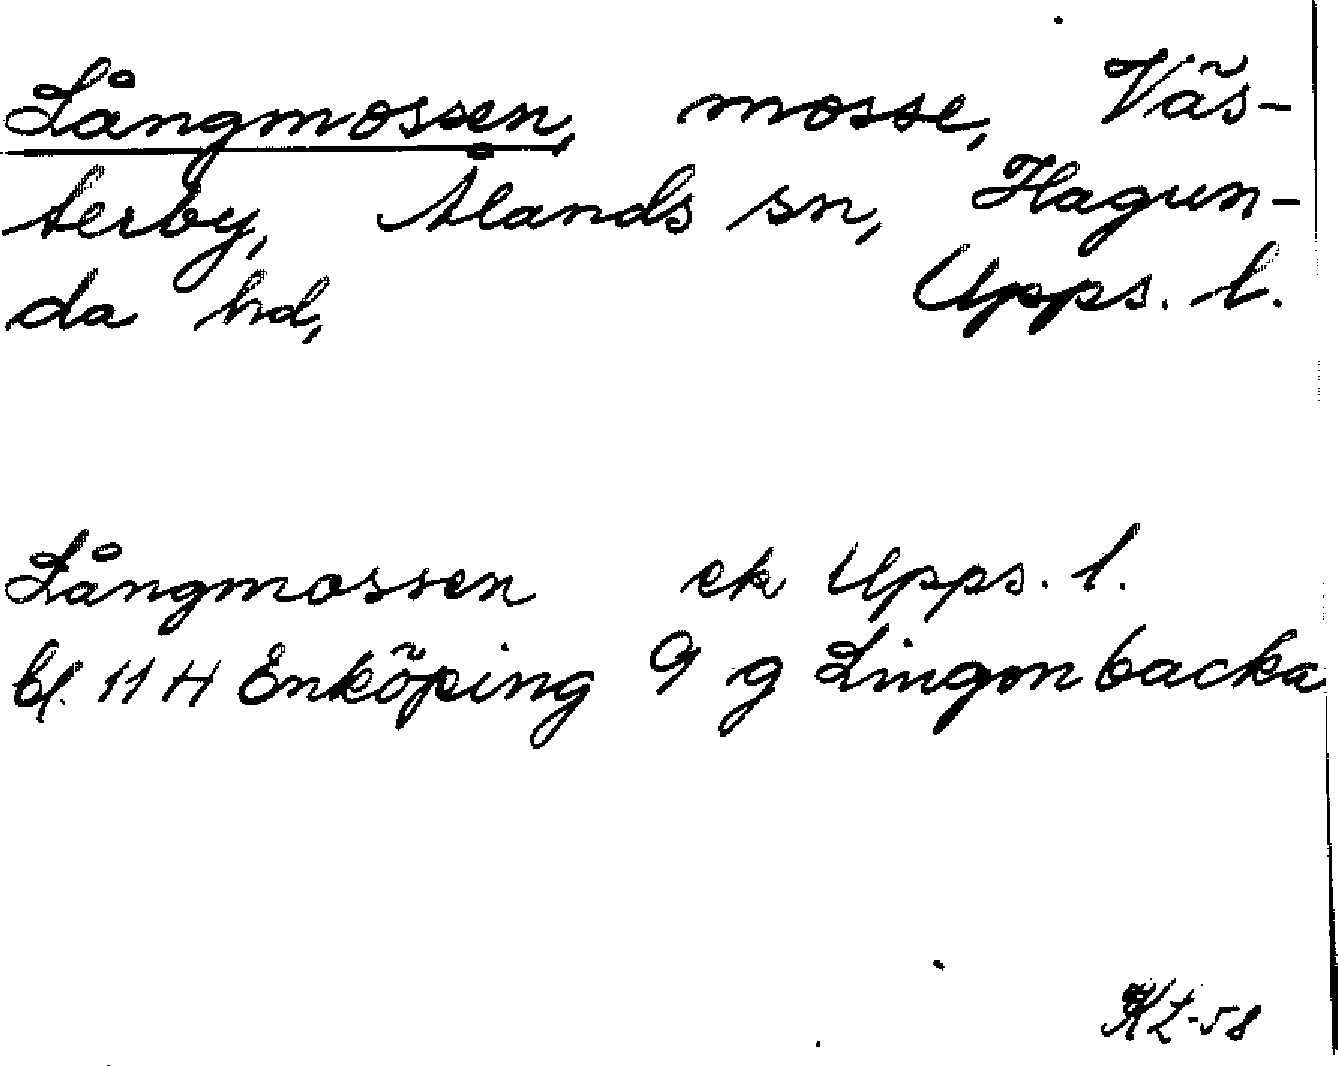 Långmossen, mosse, Väs-
terby, Ålands sn, Hagun-
da hd, Upps. l.
Långmossen ek Upps. l.
bl. 11 H Enköping 9 g Lingonbacka
KL-58